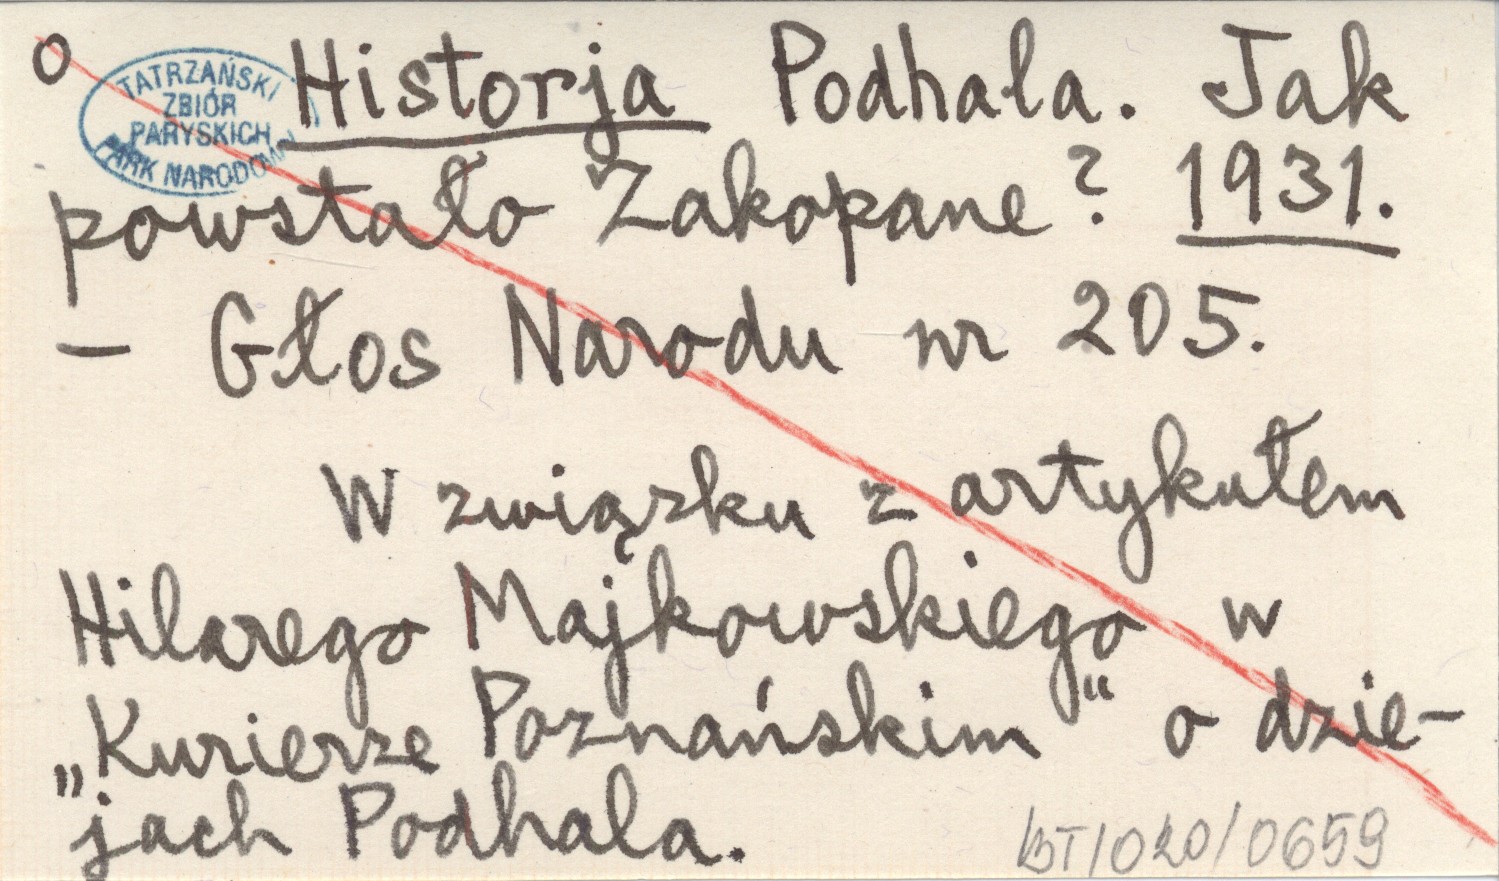 o Historja Podhala. Jak
TATRZAŃSKI
ZBIÓR
PARYSKICH
PARK NARODOWY
powstało Zakopane? 1931.
— Głos Narodu nr 205.
W związku z artykułem
Hilarego Majkowskiego w
„Kurierze Poznańskim" o dzie-
jach Podhala.
BT/020/0659